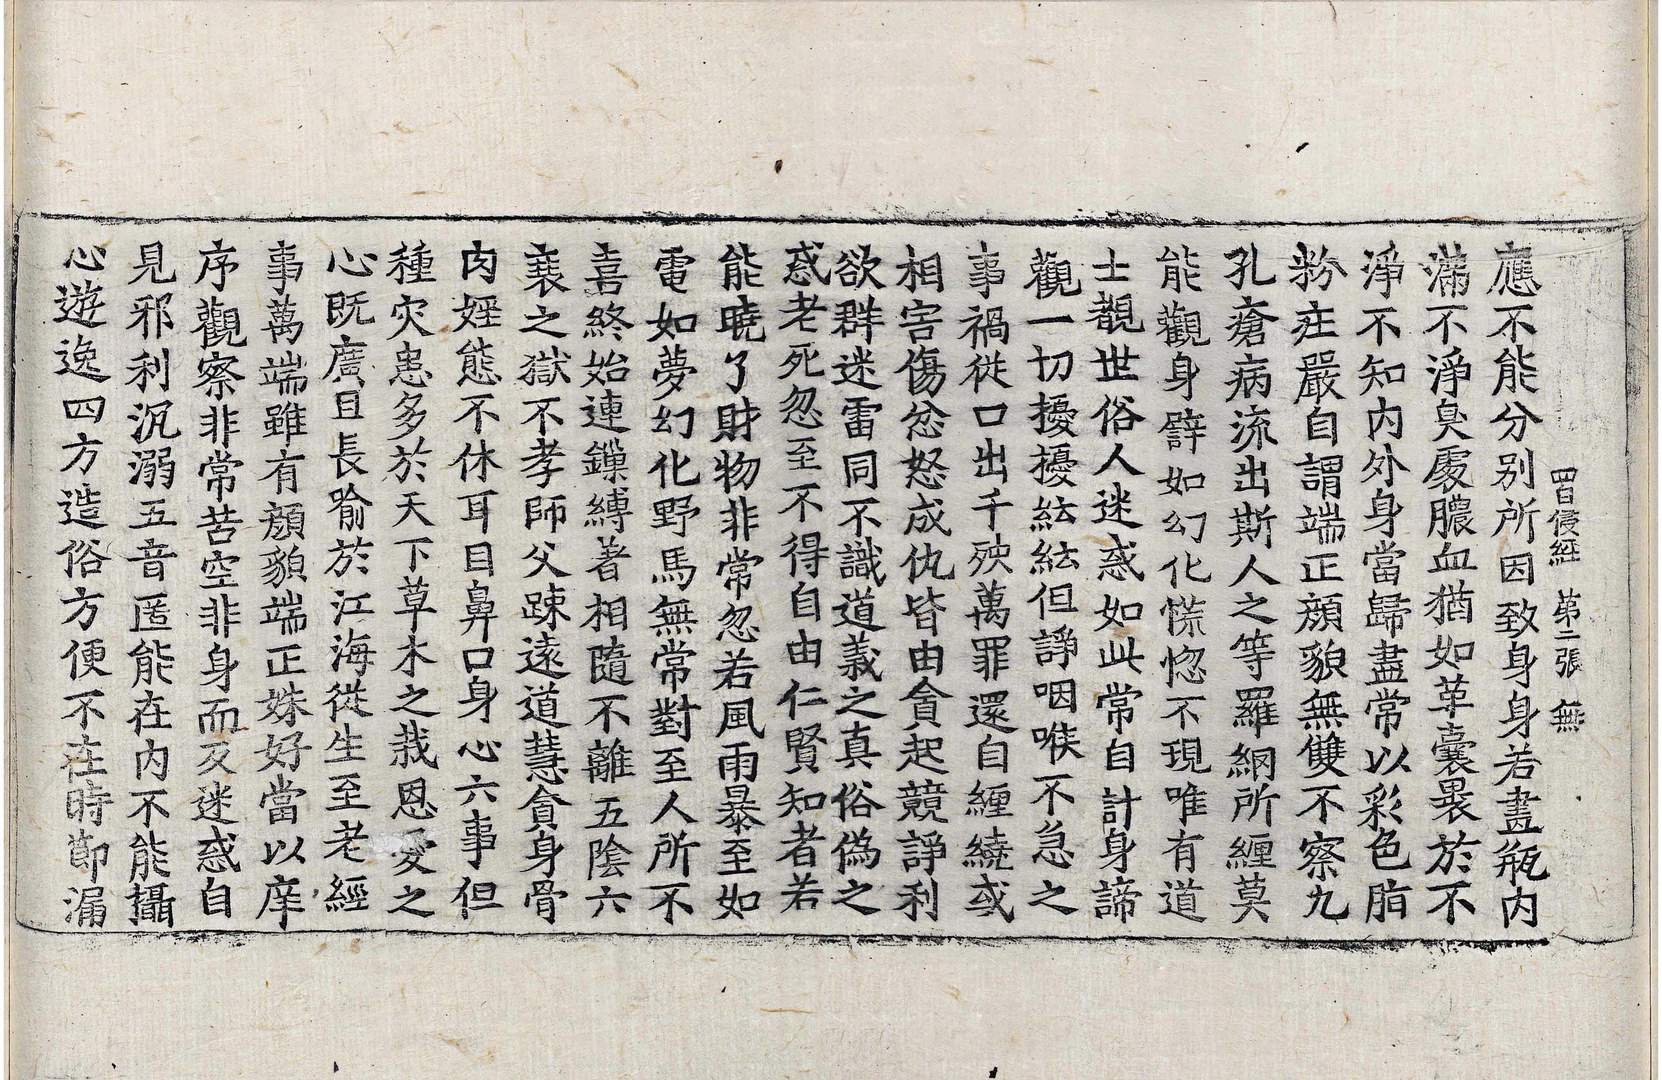 四自侵經 第二張 無
應不能分別所因致身身若畫瓶内
滿不淨臭處膿血猶如革囊畏於不
淨不知内外身當歸盡常以彩色脂
粉莊嚴自謂端正顔貌無雙不察九
孔瘡病流出斯人之等羅網所纏莫
能觀身譬如幻化慌惚不現唯有道
士觀世俗人迷惑如此常自計身諦
觀一切擾擾紜紜但諍咽喉不急之
事禍從口出千殃萬罪還自纏繞或
相害傷忿怒成仇皆由貪起競諍利
欲群迷雷同不識道義之真俗偽之
惑老死忽至不得自由仁賢知者若
能曉了財物非常忽若風雨暴至如
電如夢幻化野馬無常對至人所不
喜終始連鏁縛著相隨不離五陰六
衰之獄不孝師父踈遠道慧貪身骨
肉婬態不休耳目鼻口身心六事但
種灾患多於天下草木之栽恩愛之
心既廣且長喻於江海從生至老經
事萬端雖有顔貌端正姝好當以庠
序觀察非常苦空非身而反迷惑自
見邪利沉溺五音匿能在内不能攝
心遊逸四方造俗方便不在時節漏